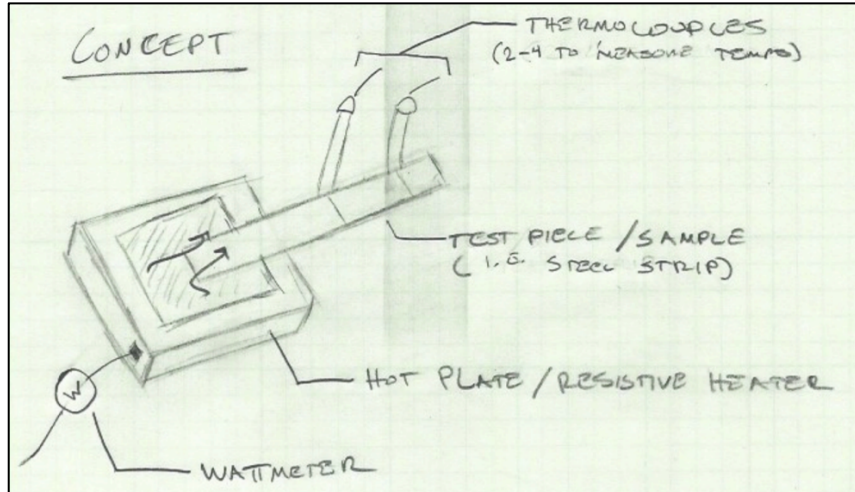 CONCEPT
THERMOCOUPLES
(2-4 TO MEASURE TEMPS)
TEST PIECE / SAMPLE
( I.E. STEEL STRIP)
HOT PLATE / RESISTIVE HEATER
W
WATTMETER